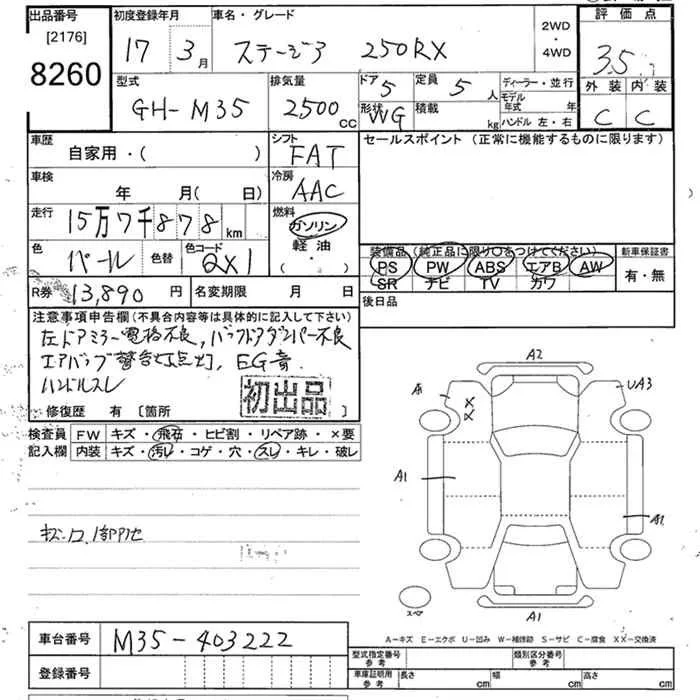 出品番号 初度登録年月 車名・グレード 2WD・4WD 評価点
[2176]
8260 17 3月 ステージア 250RX 3.5
型式 排気量 ドア 5 定員 5人 ディーラー・並行 外装 内装
GH-M35 2500cc 形状 WG 積載 kg モデル年式 年 ハンドル 左・右 C C
車歴 シフト セールスポイント (正常に機能するものに限ります)
自家用・( ) FAT
車検 冷房
年 月( 日) AAC
走行 燃料
15万7千878km ガソリン
軽油
( ・ )
色 パール 色替 色コード QX1
装備品(純正品に限り○をつけてください) 新車保証書
PS PW ABS エアB AW 有・無
SR ナビ TV カワ
R券 13,890円 名変期限 月 日 後日品
注意事項申告欄(不具合内容等は具体的に記入して下さい)
左ドアミラー電格不良,バックドアダンパー不良
エアバッグ警告灯点灯, EG音
ハンドルスレ
初出品
修復歴 有 [箇所 ]
検査員 FW キズ・飛石・ヒビ割・リペア跡・×要
記入欄 内装 キズ・汚レ・コゲ・穴・スレ・キレ・破レ
A2
UA3
A1
A1
A1
スペア
A-キズ E-エクボ U-凹み W-補修跡 S-サビ C-腐食 XX-交換済
車台番号 M35-403222
登録番号
型式指定番号 参考 類別区分番号 参考
車庫証明用 参考 長さ cm 幅 cm 高さ cm